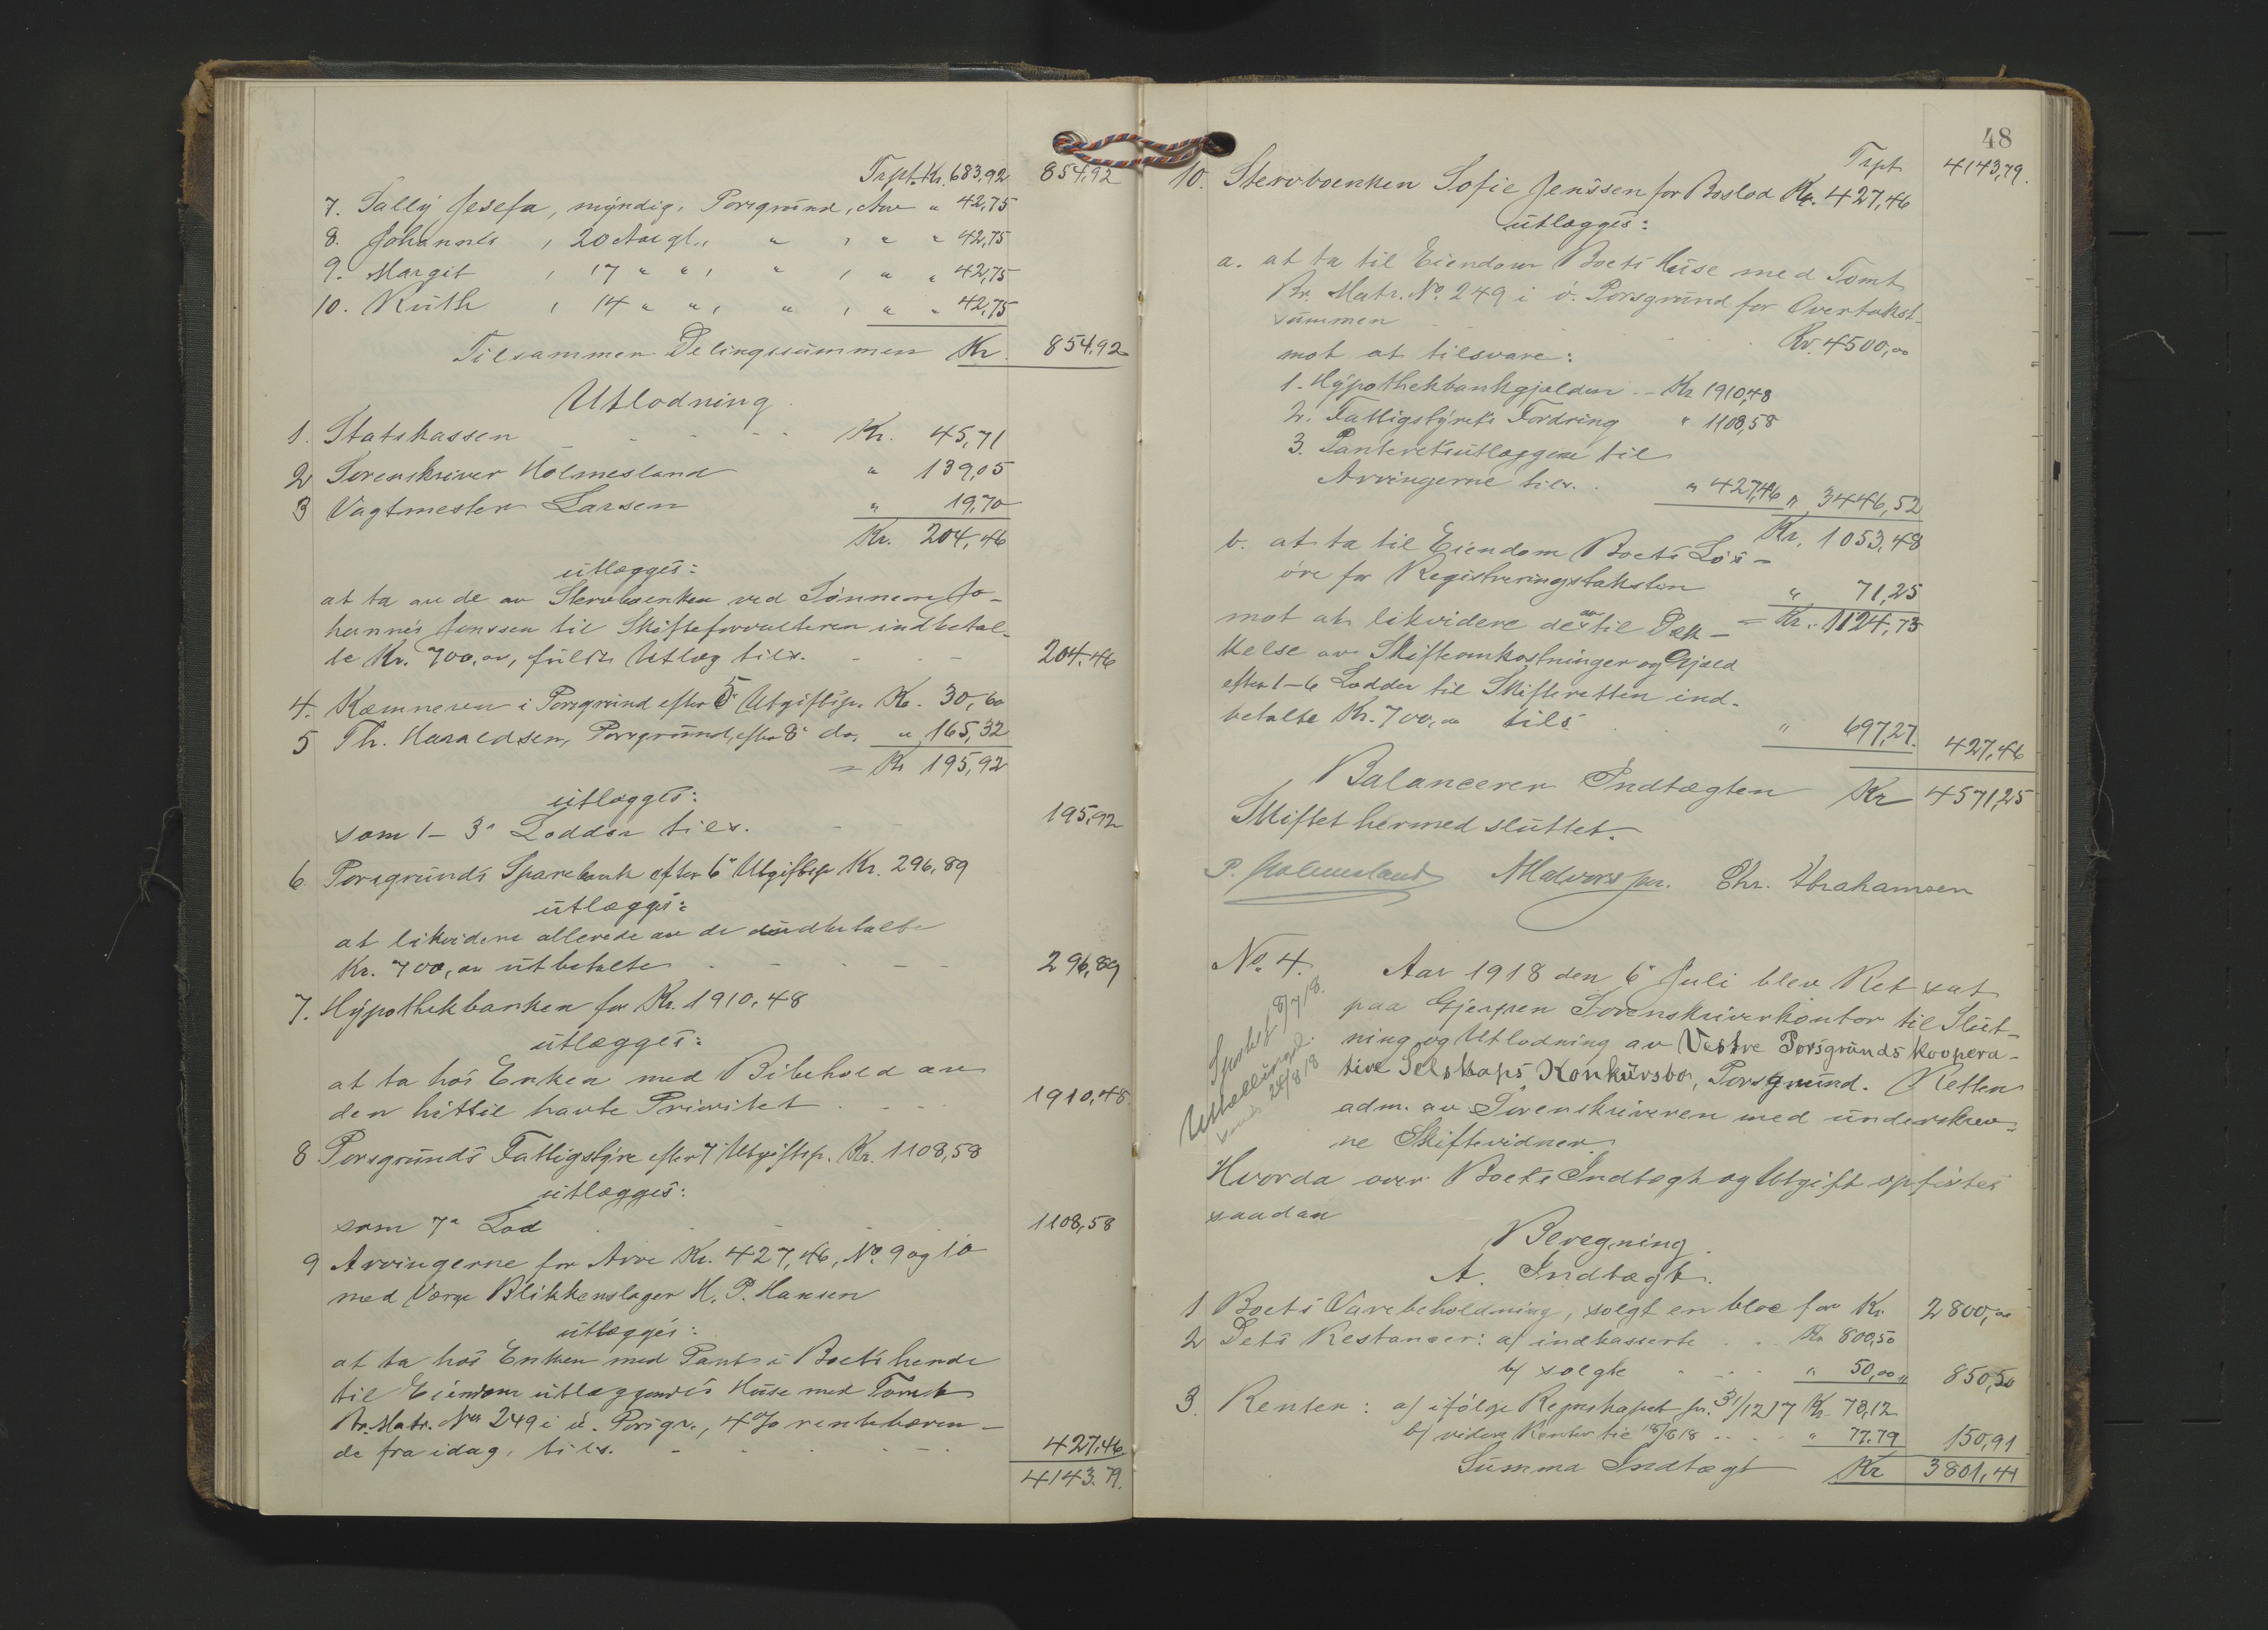 Trpt. Kr. 683,92 854,92
7. Tally Josefa, myndig, Porsgrund, Arv " 42,75
8. Johannes , 20 Aar gl., " , " " 42,75
9. Margit , 17 " " , " , " " 42,75
10. Ruth , 14 " " , " , " " 42,75
Tilsammen Delingssummen Kr. 854,92
Utlodning.
1. Statskassen Kr. 45,71
2 Sorenskriver Holmesland " 139,05
3 Vagtmester Larsen " 19,70
Kr. 204,46
utlægges:
at ta av de av Stervboenken ved Sönnen Jo-
hannes Jenssen til Skifteforvalteren indbetal-
te Kr. 700,00, fuldt Utlæg tils. 204.46
4. Kæmneren i Porsgrund efter 5' Utgiftsp. Kr. 30,60
5 Th. Haraldsen, Porsgrund, efter 8' do, " 165,32
= Kr 195,92
utlægges:
som 1-3' Lodder tils. 195,92
6. Porsgrunds Sparebank efter 6' Utgiftsp Kr. 296,89
utlægges:
at likvidere allerede av de indbetalte
Kr. 700,00 utbetalte 296,89
7. Hypothekbanken for Kr. 1910,48
utlægges:
at ta hos Enken med Bibehold av
den hittil havte Prioritet 1910,48
8 Porsgrunds Fattigstyre efter 7' Utgiftsp. Kr. 1108,58
utlægges:
som 7' Lod 1108,58
9 Arvingerne for Arv Kr. 427,46, No. 9 og 10
med Værge Blikkenslager H. P. Hansen
utlægges:
at ta hos Enken med Pant i Boets hende
til Eiendom utlæggendes Huse med Tomt
Br. Matr. No 249 i ö. Porsgr., 4% rentebæren-
de fra idag, tils. 427,46
4143.79.
48
Trpt 4143,79.
10. Stervboenken Sofie Jenssen for Boslod Kr. 427,46
utlægges:
a. at ta til Eiendom Boets Huse med Tomt
Br. Matr. No. 249 i ö. Porsgrund for Overtakst-
summen Kr. 4500,00
mot at tilsvare:
1. Hypothekbankgjælden Kr 1910,48
2. Fattigstyrets Fordring " 1108,58
3. Panteretsutlæggene til
Arvingerne tils. " 427,46 " 3446,52
Kr. 1053,48
b. at ta til Eiendom Boets Lös-
öre for Registreringstaksten " 71,25
= Kr. 1124,73
mot at likvidere de av til Dæk-
kelse av Skifteomkostninger og Gjæld
efter 1-6 Lodder til Skifteretten ind-
betalte Kr. 700,00 tils " 697,27. 427,46
Balancerer Indtægten Kr 4571,25
Skiftet hermed sluttet.
P. Holmesland AHalvorsen. Chr. Abrahamsen
No. 4. Aar 1918 den 6' Juli blev Ret sat
paa Gjerpen Sorenskriverkontor til Slut-
ning og Utlodning av Vestre Porsgrunds Koopera-
tive Selskaps Konkursbo, Porsgrund. Retten
adm. av Sorenskriveren med underskrev-
ne Skiftevidner.
8/7 18.
24/8 18
Hvorda over Boets Indtægt og Utgift opförtes
saadan
Beregning.
A. Indtægt.
1. Boets Varebeholdning, solgt en bloc for Kr. 2800,00
2 Dets Restancer: a/ indkasserte Kr 800,50
b/ solgte " 50,00 " 850,50
3. Renter: a/ ifölge Regnskapet pr. 31/12 17 Kr 73,12
b/ videre Renter til 18/6 18 " 77.79 150,91
Summa Indtægt Kr 3801,41